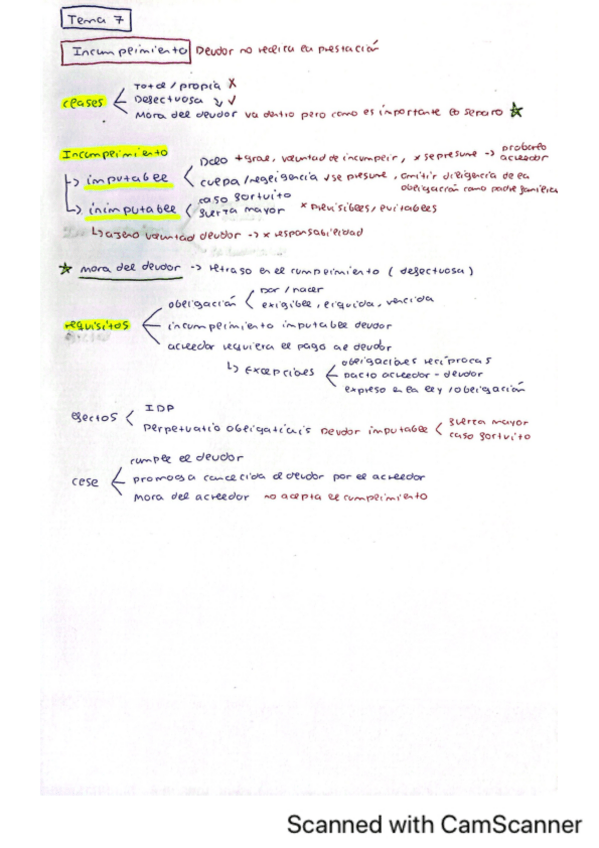 Tema 7
Incumplimiento Deudor no realiza la prestación
clases
Total / propia x
Defectuosa ↓ ✓
Mora del deudor va dentro pero como es importante lo separo ★
Incumplimiento
↳ imputable
Dolo + grave, voluntad de incumplir, x se presume -> probarlo acreedor
culpa / negligencia ✓ se presume, omitir diligencia de la obligación como padre familia
↳ inimputable
caso fortuito
fuerza mayor x previsibles, evitables
↳ ajeno voluntad deudor -> x responsabilidad
★ mora del deudor -> retraso en el cumplimiento (defectuosa)
requisitos
obligación
Dar / hacer
exigible, líquida, vencida
incumplimiento imputable deudor
acreedor requiera el pago al deudor
↳ Excepciones
obligaciones recíprocas
pacto acreedor - deudor
expreso en la ley / obligación
efectos
IDP
Perpetuatio obligationis Deudor imputable
fuerza mayor
caso fortuito
cese
cumple el deudor
promoga concedida al deudor por el acreedor
mora del acreedor no acepta el cumplimiento
Scanned with CamScanner